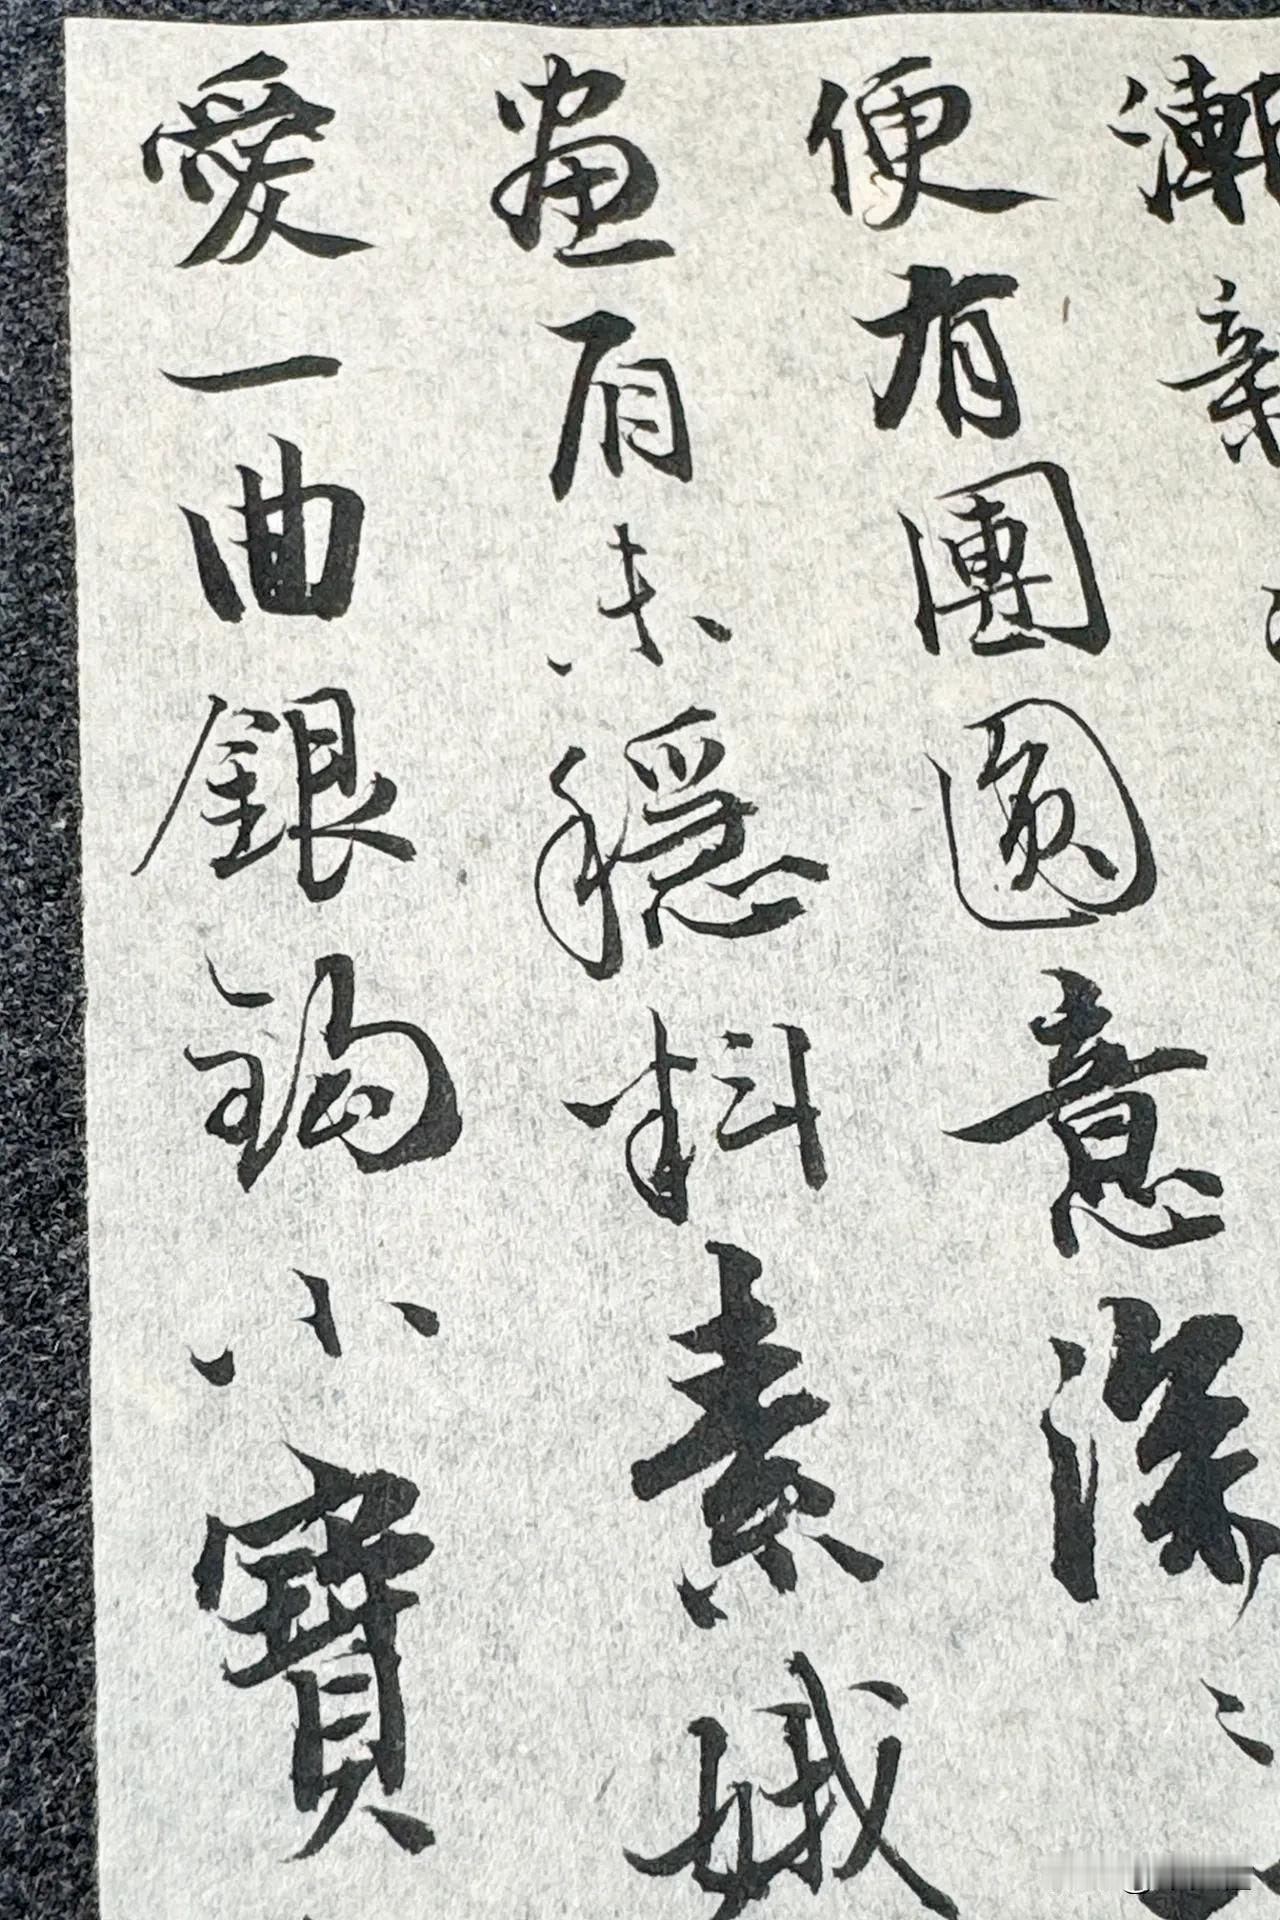 漸新
便有團圓意深
畫眉未穩料素娥
愛一曲銀鈎小寶